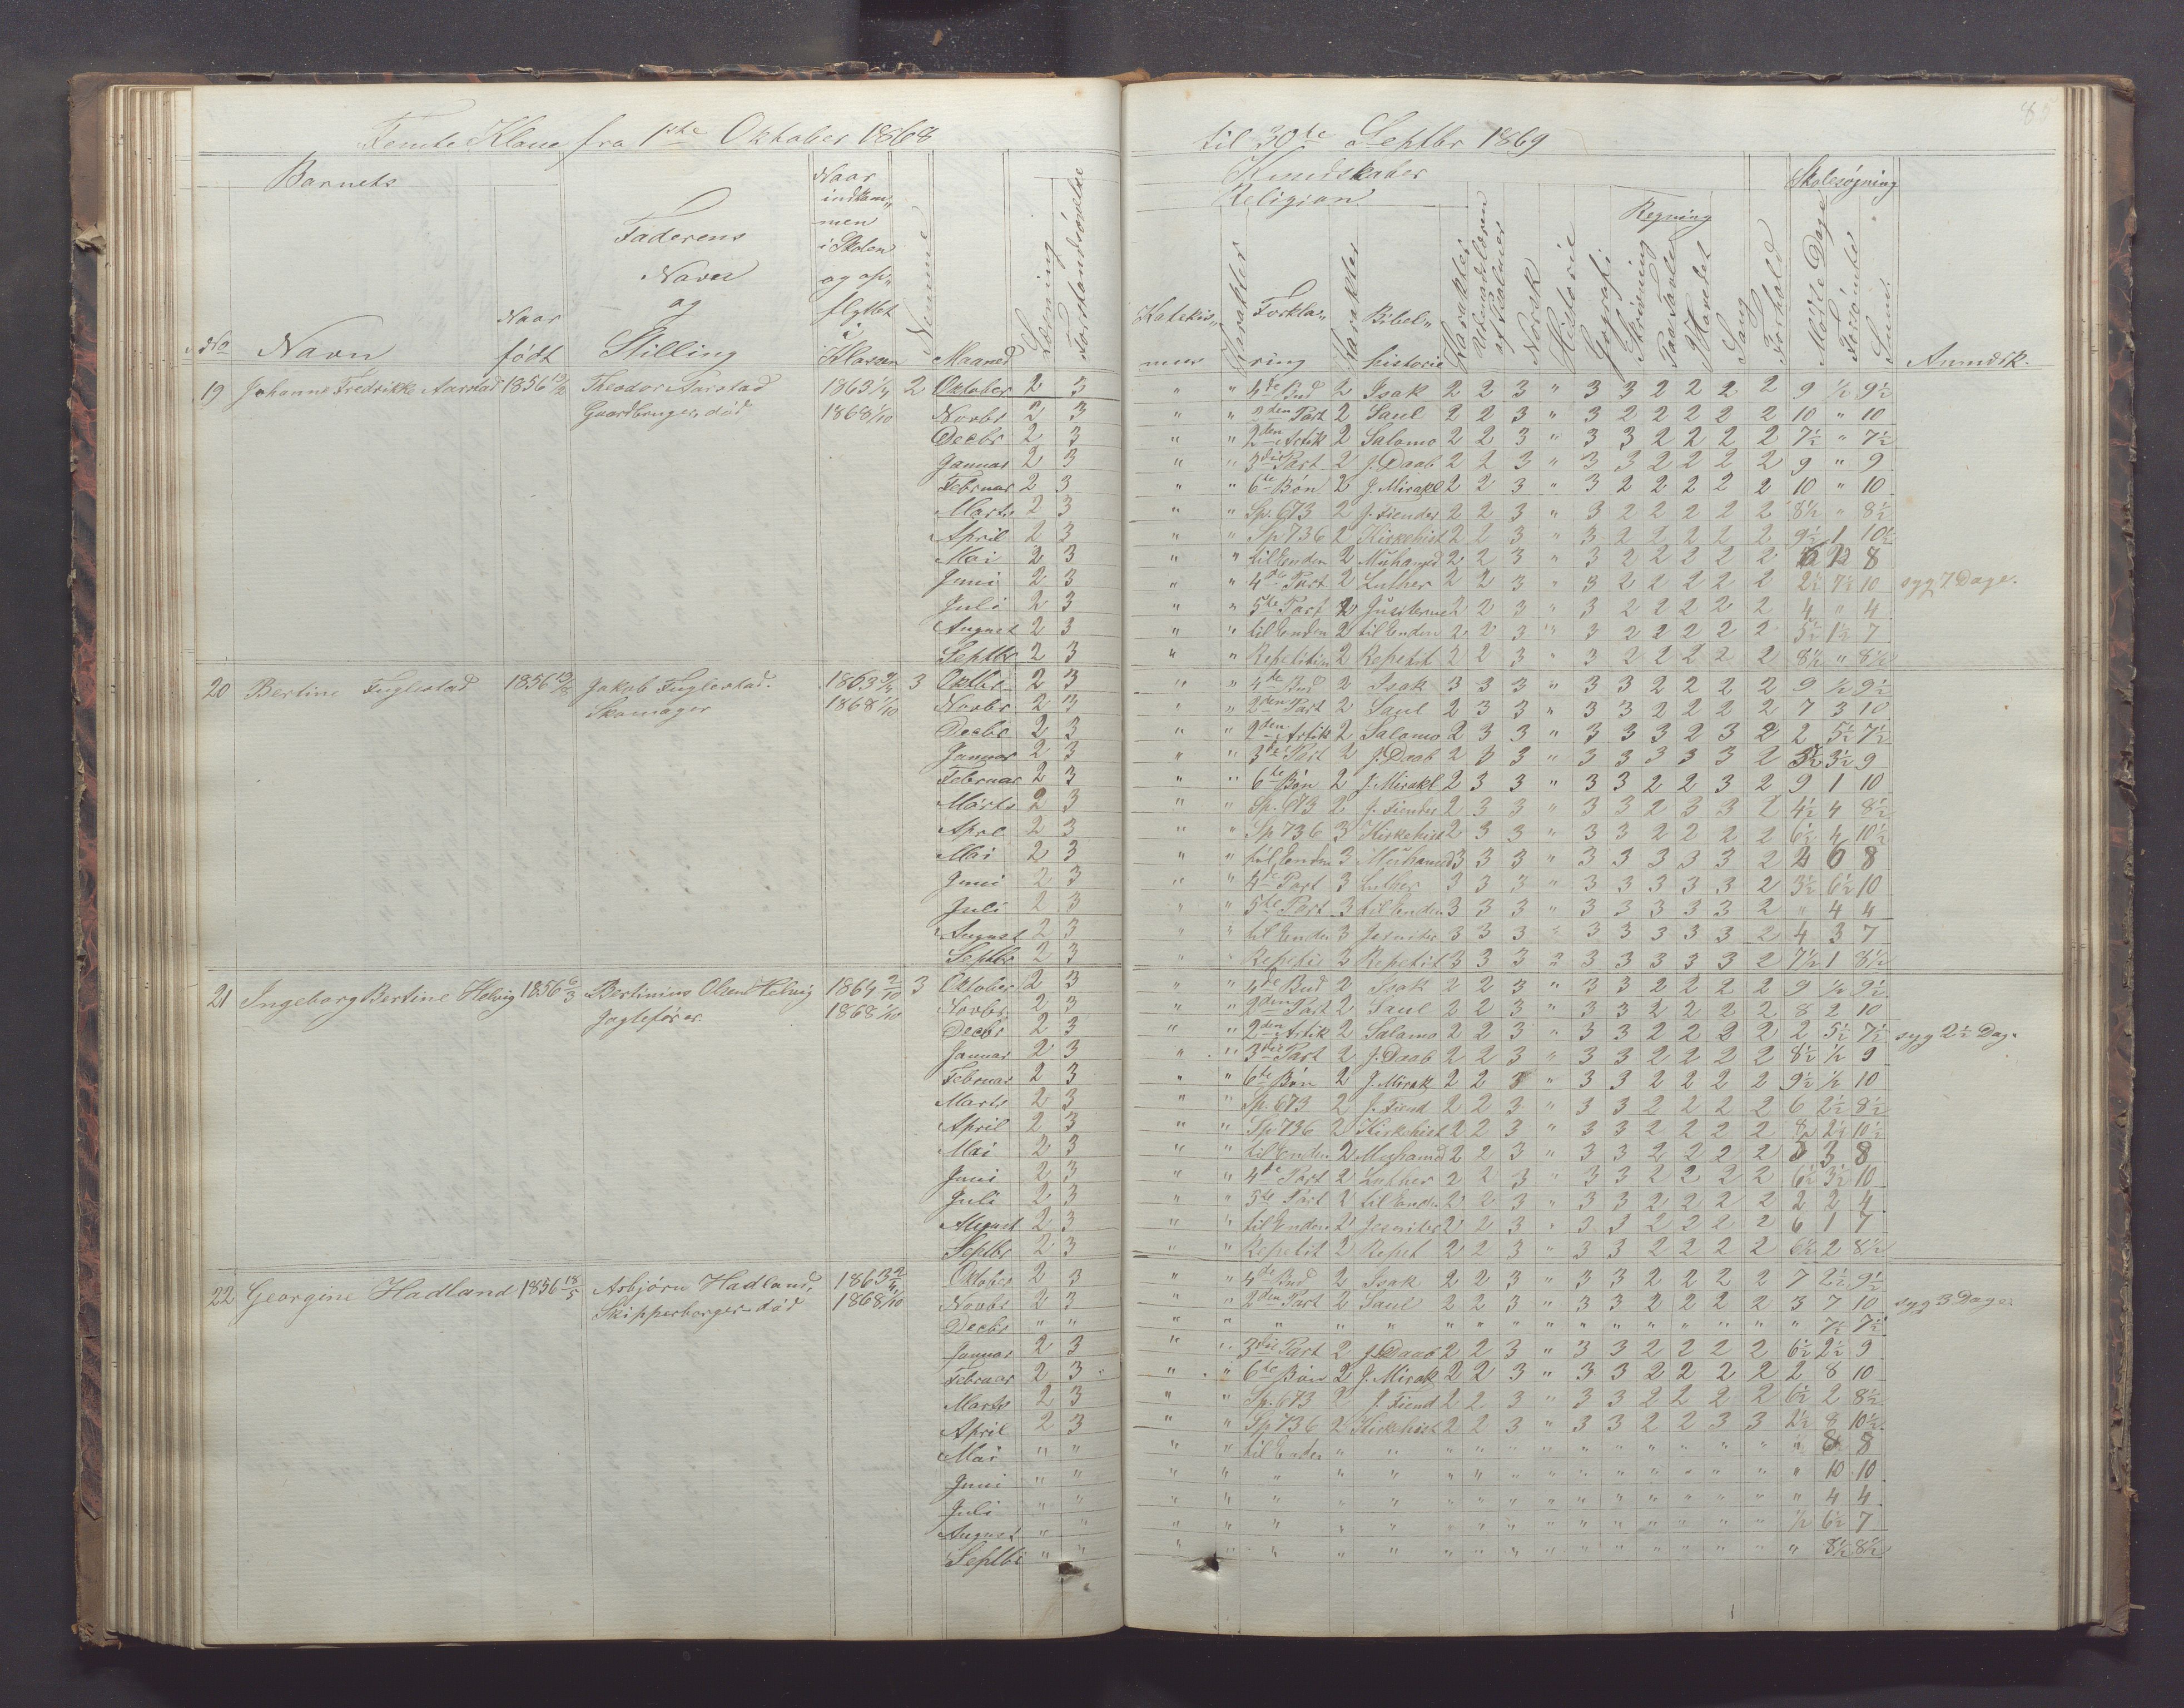 Femte Klasse fra 1ste Oktober 1868 til 30te Septbr 1869
85
Barnets
Faderens Navn og Stilling
Naar indkommen i Skolen og opflyttet i Klassen
Nummer
Maaned
Læsning
Forstandsøvelse
No Navn Naar født
Kundskaber
Religion
Katekismus Karakter Forklaring Karakter Bibelhistorie Karakter Udenadslæren af Psalmer Norsk Historie Geografi Skrivning
Regning
Paa Tavle I Hovedet
Sang Forhold
Skolesøgning
Mødte Dage Forsømte Sum.
Anmærk.
19 Johanne Fredrikke Aarstad 1856 Theodor Aarstad 1863 2 Oktober 2 3 " " 4de Bud 2 Isak 2 2 3 " 3 3 2 2 2 2 9 ½ 9½
Gaardbruger, død 1868 1/10 Novbr 2 3 " " 2den Part 2 Saul 2 2 3 " 3 2 2 2 2 2 10 " 10
Decbr 2 3 " " 2den Artik 2 Salomo 2 2 3 " 3 3 2 2 2 2 7½ " 7½
Januar 2 3 " " 3die Part 2 J. Daab 2 2 3 " 3 3 2 2 2 2 9 " 9
Februar 2 3 " " 6te Bøn 2 J. Mirakl 2 2 3 " 3 2 2 2 2 2 10 " 10
Marts 2 3 " " Sp. 673 2 J. Fiender 2 2 3 " 3 2 2 2 2 2 8½ " 8½
April 2 3 " " Sp 736 2 Kirkehist 2 2 3 " 3 2 2 2 2 2 9½ 1 10½
Mai 2 3 " " til Enden 2 Muhamed 2 2 3 " 3 2 2 2 2 2 6 2 8
Juni 2 3 " " 4de Part 2 Luther 2 2 3 " 3 2 2 2 2 2 2½ 7½ 10 syg 7 Dage.
Juli 2 3 " " 5te Part 2 Jusiterne 2 2 3 " 3 2 2 2 2 2 4 " 4
August 2 3 " " til Enden 2 til Enden 2 2 3 " 3 2 2 2 2 2 5½ 1½ 7
Septbr 2 3 " " Repetition 2 Repetit 2 2 3 " 3 2 2 2 2 2 8½ " 8½
20 Bertine Fuglestad 1856 Jakob Fuglestad. 1863 3 Oktbr 2 3 " " 4de Bud 2 Isak 3 3 3 " 3 3 2 2 2 2 9 ½ 9½
Skomager 1868 1/10 Novbr 2 3 " " 2den Part 2 Saul 2 3 3 " 3 3 2 2 2 2 7 3 10
Decbr 2 3 " " 2den Artik 2 Salomo 2 3 3 " 3 3 3 2 3 2 2 5½ 7½
Januar 2 3 " " 3die Part 2 J. Daab 2 3 3 " 3 3 3 3 3 2 5½ 3½ 9
Februar 2 3 " " 6te Bøn 2 J. Mirakl 2 3 3 " 3 3 2 2 3 2 9 1 10
Marts 2 3 " " Sp. 673 2 J. Fiender 2 3 3 " 3 3 2 3 3 2 4½ 4 8½
April 2 3 " " Sp 736 3 Kirkehist 2 3 3 " 3 3 2 2 2 2 6½ 4 10½
Mai 2 3 " " til Enden 3 Muhamed 3 3 3 " 3 3 3 3 3 2 2 6 8
Juni 2 3 " " 4de Part 3 Luther 3 3 3 " 3 3 3 3 3 2 3½ 6½ 10
Juli 2 3 " " 5te Part 3 til Enden 3 3 3 " 3 3 3 3 3 2 " 4 4
August 2 3 " " til Enden 3 Jesuiter 3 3 3 " 3 3 3 3 3 2 4 3 7
Septbr 2 3 " " Repetit 3 Repetit 3 3 3 " 3 3 3 3 3 2 7½ 1 8½
21 Ingeborg Bertine Helvig 1856 6/3 Bertinius Olsen Helvig 1864 2/10 3 Oktober 2 3 " " 4de Bud 2 Isak 2 2 3 " 3 3 2 2 2 2 9 ½ 9½
Jagtefører. 1868 1/10 Novbr. 2 3 " " 2den Part 2 Saul 2 2 3 " 3 3 2 2 2 2 8 2 10
Decbr 2 3 " " 2den Artik 2 Salomo 2 2 3 " 3 3 2 2 2 2 2 5½ 7½ syg 2½ Dag.
Januar 2 3 " " 3die Part 2 J. Daab 2 2 3 " 3 3 2 2 2 2 8½ ½ 9
Februar 2 3 " " 6te Bøn 2 J. Mirak 2 2 3 " 3 3 2 2 2 2 9½ ½ 10
Marts 2 3 " " Sp. 673 2 J. Fiend 2 2 3 " 3 3 2 2 2 2 6 2½ 8½
April 2 3 " " Sp 736 2 Kirkehist 2 2 3 " 3 3 2 2 2 2 8 2½ 10½
Mai 2 3 " " til Enden 2 Muhamed 2 2 3 " 3 3 2 2 2 2 5 3 8
Juni 2 3 " " 4de Part 2 Luther 2 2 3 " 3 3 2 2 2 2 6½ 3½ 10
Juli 2 3 " " 5te Part 2 til Enden 2 2 3 " 3 3 2 2 2 2 2 2 4
August 2 3 " " til Enden 2 Jesuiter 2 2 3 " 3 3 2 2 2 2 6 1 7
Septbr 2 3 " " Repetit 2 Repet 2 2 3 " 3 3 2 2 2 2 6½ 2 8½
22 Georgine Hadland 1856 18/5 Asbjørn Hadland, 1863 2/4 Oktober 2 3 " " 4de Bud 2 Isak 2 2 3 " 3 3 2 2 2 2 7 2½ 9½
Skipperborger død 1868 1/10 Novbr 2 3 " " 2den Part 2 Saul 2 2 3 " 3 3 2 2 2 2 3 7 10 syg 3 Dage.
Decbr " " " " " " " " " " " " " " " " " " 7½ 7½
Januar 2 3 " " 3die Part 2 J. Daab 2 2 3 " 3 3 2 2 2 2 6½ 2½ 9
Februar 2 3 " " 6te Bøn 2 J. Mirak 2 2 3 " 3 3 2 2 2 2 2 8 10
Marts 2 3 " " Sp. 673 2 J. Fiend 2 2 3 " 3 3 2 2 2 2 6½ 2 8½
April 2 3 " " Sp 736 2 Kirkehist 2 2 3 " 3 3 2 2 3 3 2½ 8 10½
Mai " " " " til Enden " " " " " " " " " " " " " 8 8
Juni " " " " " " " " " " " " " " " " " " 10 10
Juli " " " " " " " " " " " " " " " " " " 4 4
August " " " " " " " " " " " " " " " " " ½ 6½ 7
Septbr " " " " " " " " " " " " " " " " " " 8½ 8½